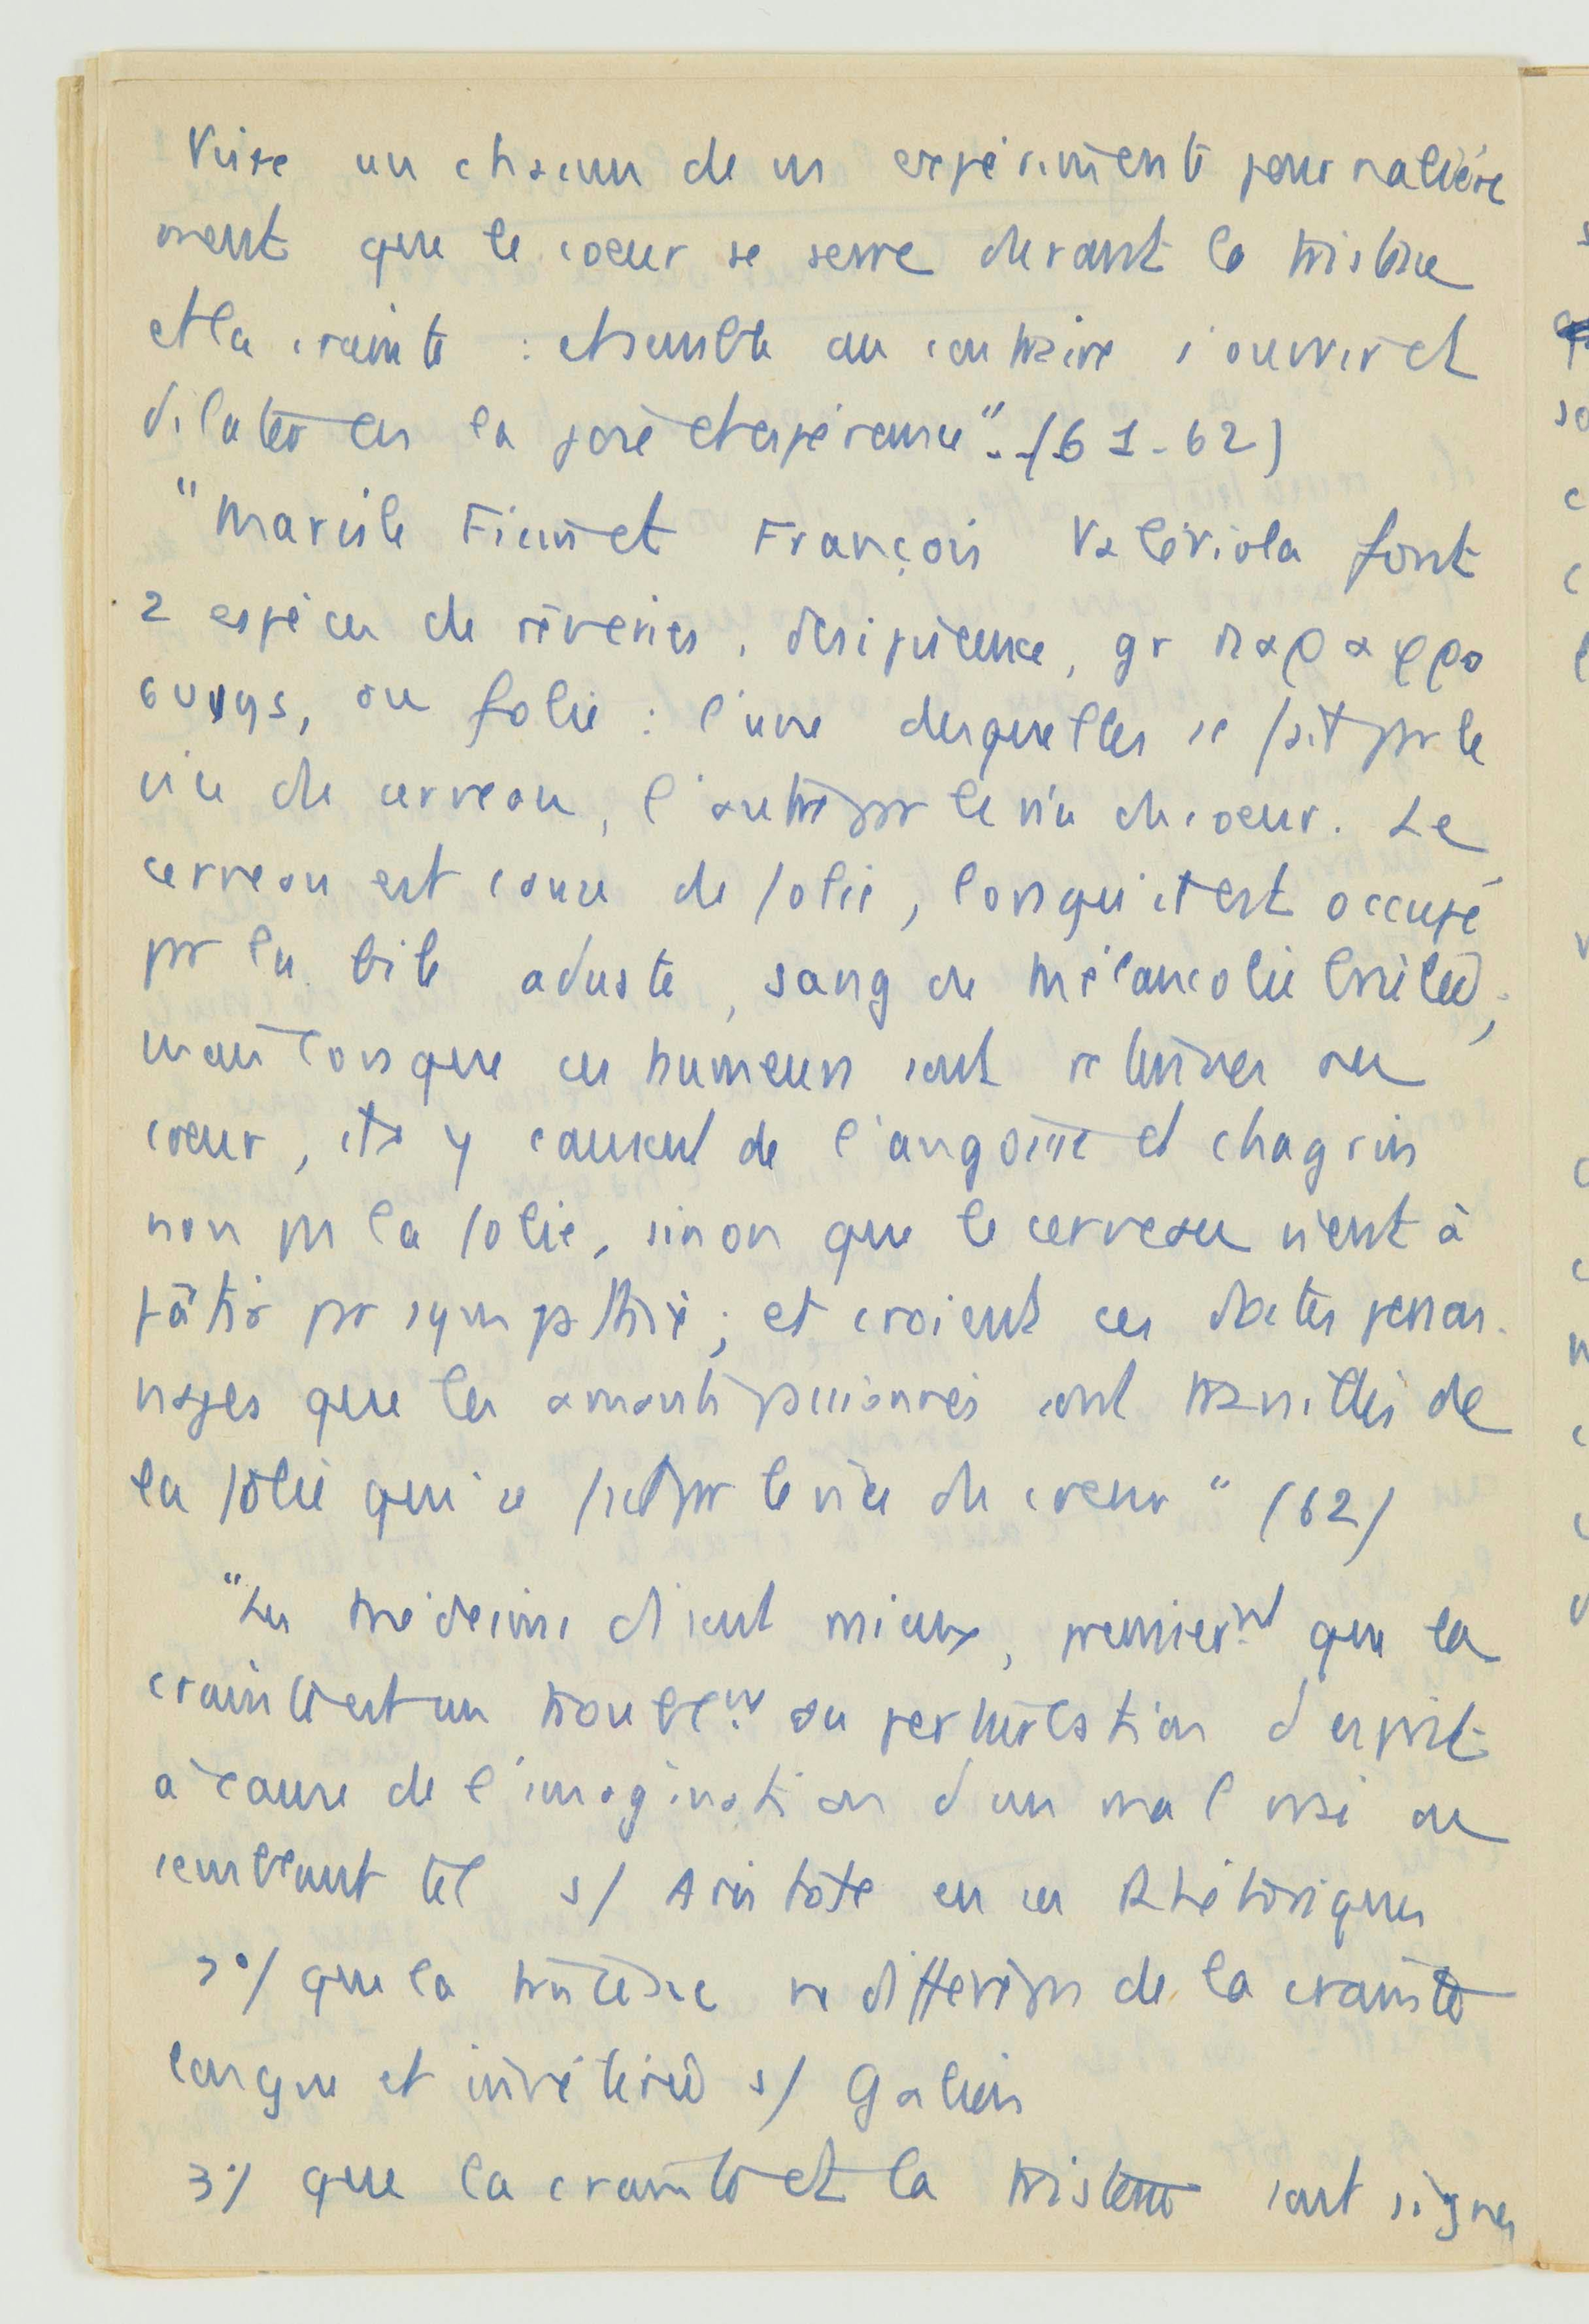 Voire un chacun de ns expérimente journalière
ment que le coeur se serre durant la tristesse
et la crainte : et semble au contraire s'ouvrir et
dilater en la joie et espérance". (61-62)
"Marsile Ficin et François Valériola font
2 espèces de rêveries, desipience, gr παραφρο
συνης, ou folie : l'une desquelles se fait par le
vice de cerveau, l'autre par le vice de coeur. Le
cerveau est cause de folie, lorsqu'il est occupé
par la bile aduste, sang de mélancolie brûlée,
mais lorsque ces humeurs sont retenues au
coeur, ils y causent de l'angoisse et chagrin
non pas la folie, sinon que le cerveau vient à
pâtir par sympathie ; et croient ces doctes person
nages que les amants passionnés sont travaillés de
la folie qui se fait par le vice du coeur" (62)
"Les médecins disent mieux, premiermt que la
crainte est un troublemt ou perturbation d'esprit
à cause de l'imagination d'un mal vrai ou
semblant tel s/ Aristote en ses Rhétoriques
2°/ que la tristesse ne diffère pas de la crainte
longue et invétérée s/ Galien
3°/ que la crainte et la tristesse sont signes